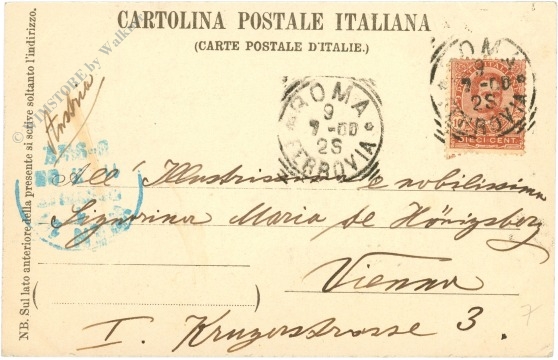 CARTOLINA POSTALE ITALIANA
(CARTE POSTALE D'ITALIE.)
NB. Sul lato anteriore della presente si scrive soltanto l'indirizzo.
Austria
ROMA
9
7-00
2S
FERROVIA
ROMA
9
7-00
2S
FERROVIA
DIECI CENT.
All' Illustrissima e nobilissima
Signorina Maria de Königsberg
Vienna
I. Krugerstrasse 3.
7